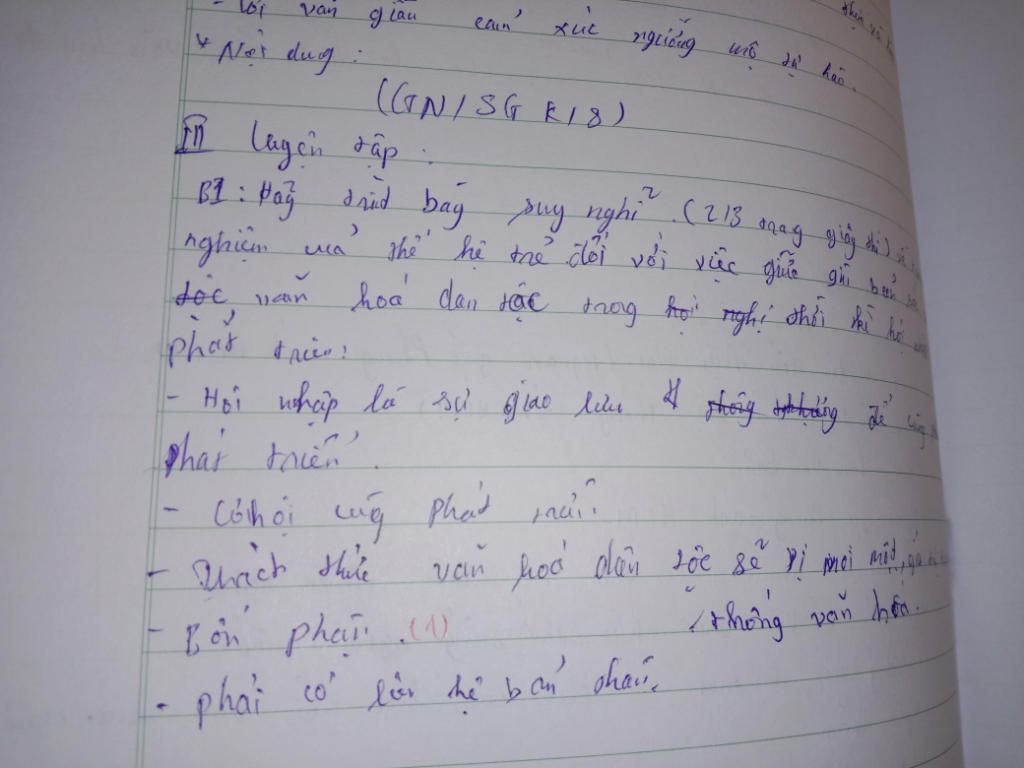 - Lời văn giàu cảm xúc ngưỡng mộ tự hào.
* Nội dug :
(GN/SGK/8)
III Luyện tập :
B1 : Hãy trìh bày suy nghĩ ² (2/3 trag giấy thi) về
nghiệm của thế hệ trẻ đối với việc giữ gìn bản
tộc văn hoá dân tộc trong hội nghị thời kì hội
phát triển:
- Hội nhập là sự giao lưu để cùng
phát triển.
- Cơ hội cùg phát triển.
- Thách thức văn hoá dân tộc sẽ bị mai một,
- Bổn phận. (1) thống văn hóa.
- phải có liên hệ bản thân.